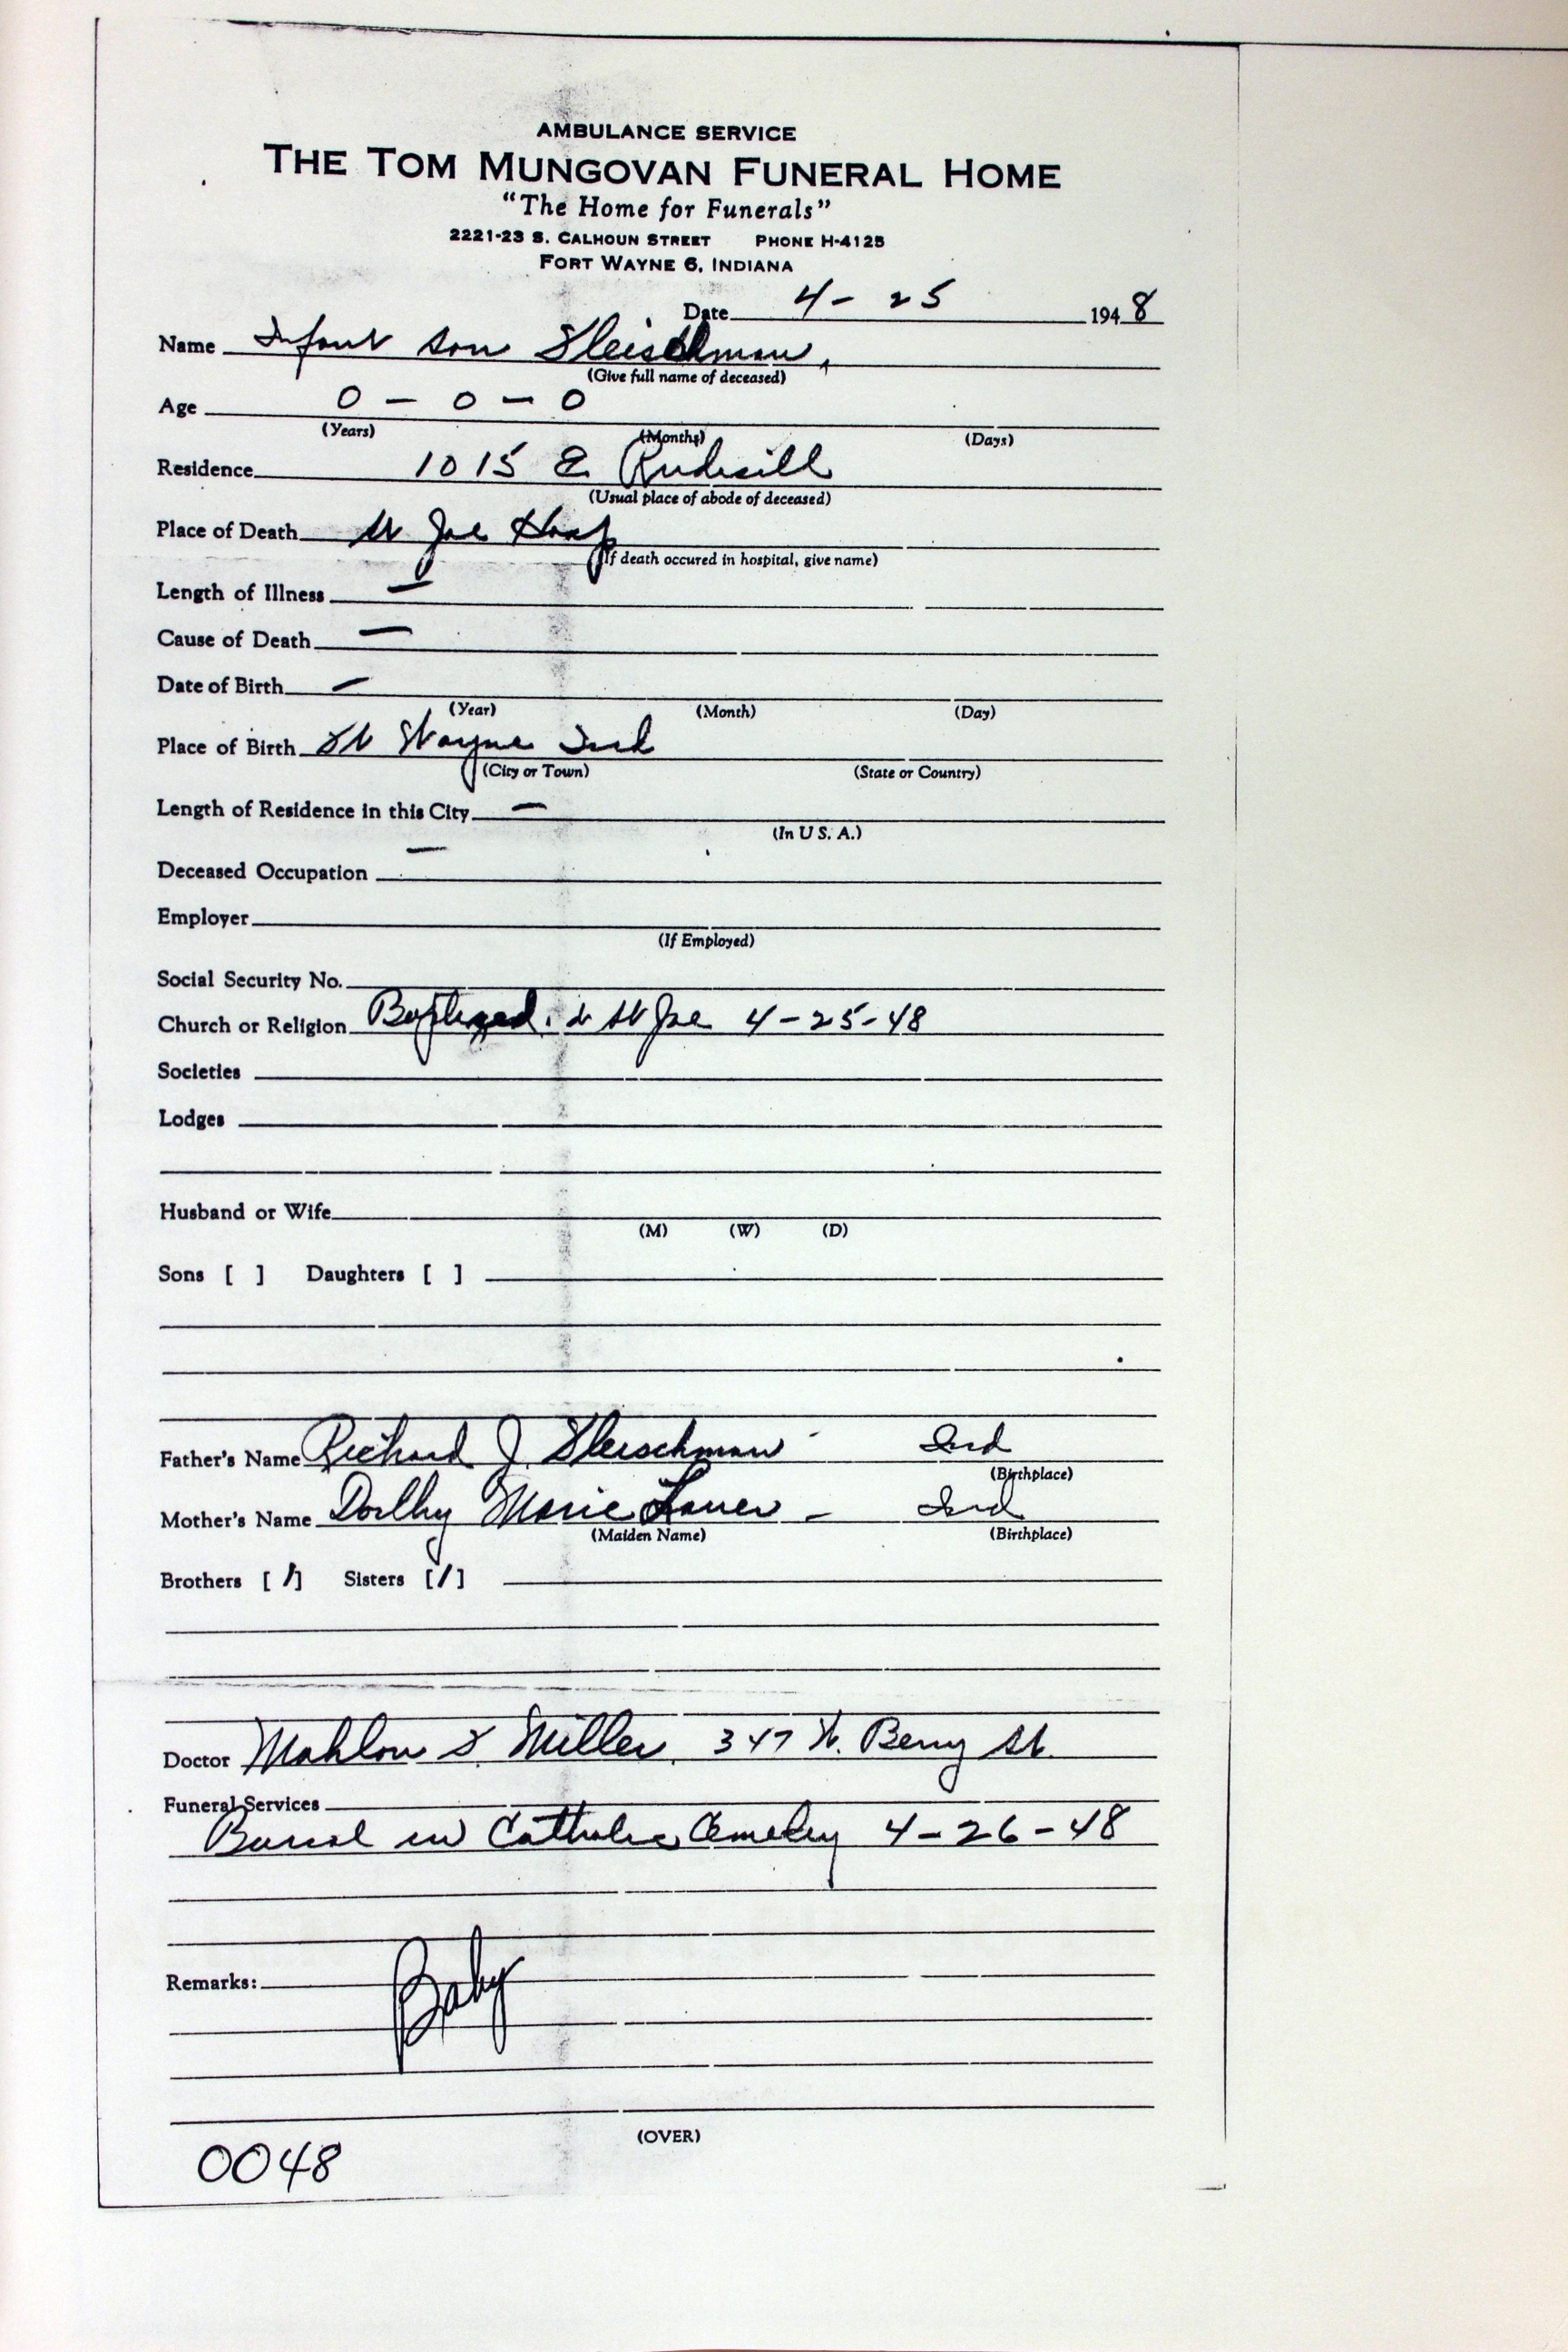 AMBULANCE SERVICE
THE TOM MUNGOVAN FUNERAL HOME
"The Home for Funerals"
2221-23 S. CALHOUN STREET PHONE H-4125
FORT WAYNE 6, INDIANA
Date 4-25 1948
Name Infant son Fleischman,
(Give full name of deceased)
Age 0-0-0
(Years) (Months) (Days)
Residence 1015 E Rudisill
(Usual place of abode of deceased)
Place of Death St Joe Hosp
(If death occured in hospital, give name)
Length of Illness —
Cause of Death —
Date of Birth —
(Year) (Month) (Day)
Place of Birth Ft Wayne Ind
(City or Town) (State or Country)
Length of Residence in this City —
(In U S. A.)
Deceased Occupation —
Employer
(If Employed)
Social Security No.
Church or Religion Baptized. St Joe 4-25-48
Societies
Lodges
Husband or Wife
(M) (W) (D)
Sons [ ] Daughters [ ]
Father's Name Richard J. Fleischman - Ind
(Birthplace)
Mother's Name Marie Lauer - Ind
(Maiden Name) (Birthplace)
Brothers [1] Sisters [1]
Doctor Mahlon F. Miller. 347 W. Berry St.
Funeral Services
Burial in Catholic Cemetery 4-26-48
Remarks: Baby
(OVER)
0048